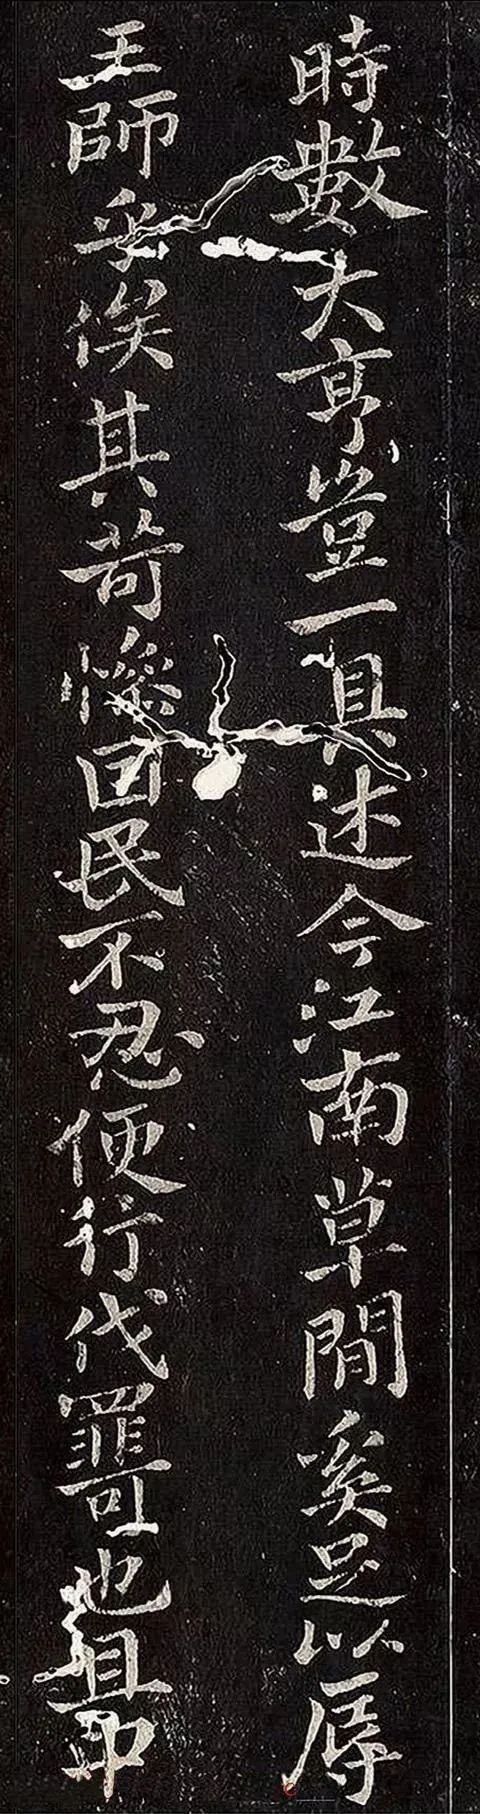 時數大亨豈一具述今江南草間奚足以辱
王師乎俟其苛慘困民不忍便行伐罪可也且